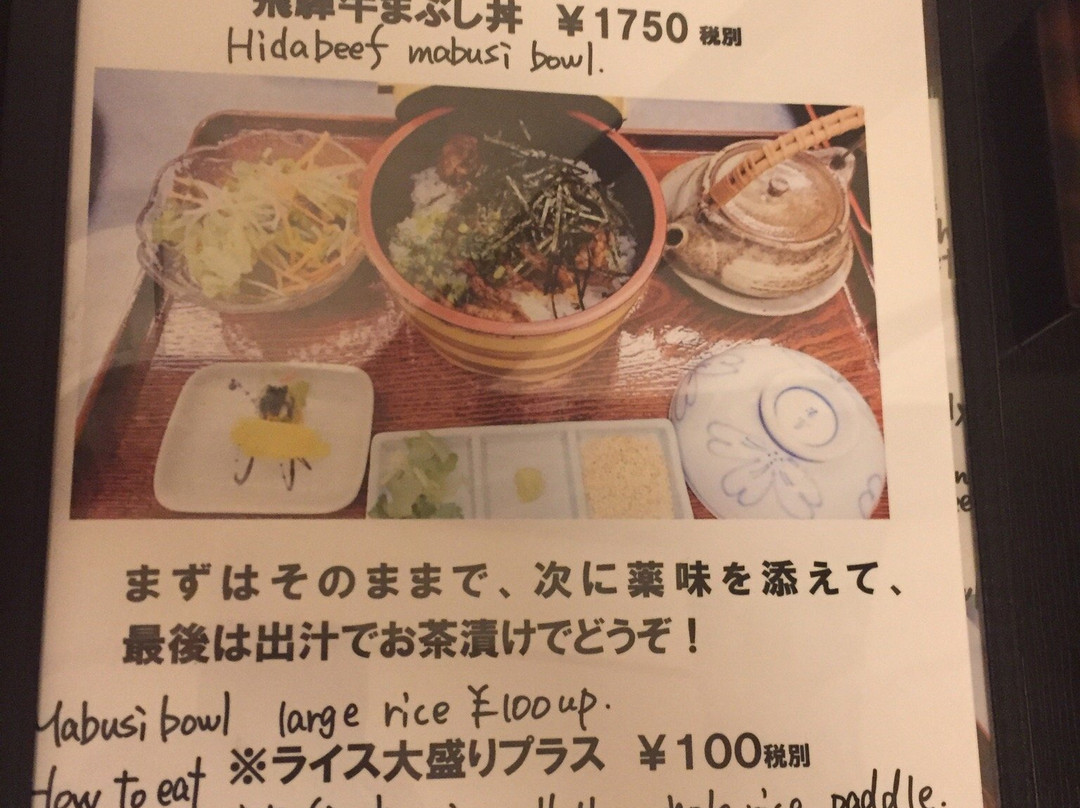 飛騨牛まぶし丼 ¥1750 税別
Hidabeef mabusi bowl.
まずはそのままで、次に薬味を添えて、
最後は出汁でお茶漬けでどうぞ！
Mabusi bowl large rice ¥100up.
※ライス大盛りプラス ¥100税別
How to eat
rice paddle.